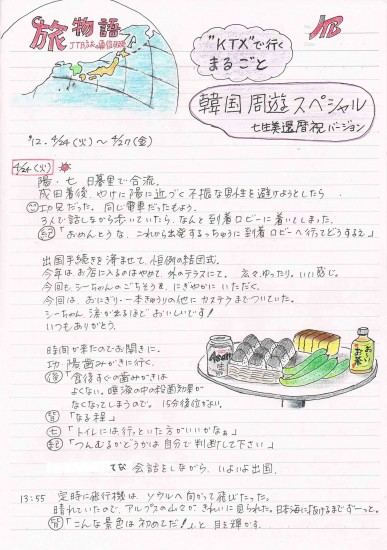 旅物語
JTB
"KTX"で行く
まるごと
韓国周遊スペシャル
七生美還暦祝バージョン
'12. 4/24(火)〜4/27(金)
4/24(火)
陽・七 日暮里で合流。
成田着後、やけに陽に近づく不振な男性を避けようとしたら…
功兄だった。同じ電車だったもよう。
3人で話しながら歩いていたら、なんと到着ロビーに着いてしました。
紀「おめんとうな、これから出発するっちゅうに到着ロビーへ行ってどうするえ」
出国手続きを済ませて、恒例の結団式。
今年はお店に入るのはやめて、外のテラスにて。広々、ゆったり、いい感じ。
今回もシーちゃんのごちそうを、にぎやかにいただく。
今回は、おにぎり・一本きゅうりの他にカステラまでついていた。
シーちゃん、涙が出るほどおいしいです!
いつもありがとう。
時間が来たのでお開きに。
功、陽歯みがきに行く。
「食後すぐの歯みがきは
よくない。唾液の中の殺菌効果が
なくなってしまうので。15分後位がよい。
皆「なる程」
七「トイレには行っといた方がいいかなぁ」
紀「つんむるかどうかは自分で判断して下さい」
てな 会話をしながら、いよいよ出国。
13:55 定時に飛行機は、ソウルへ向かって飛びたった。
晴れていたので、アルプスの山々がきれいに見られた。日本海にぬけるまでずーっと。
「こんな景色は初めてだ!」と目を輝かす。
Asahi
生
お〜いお茶